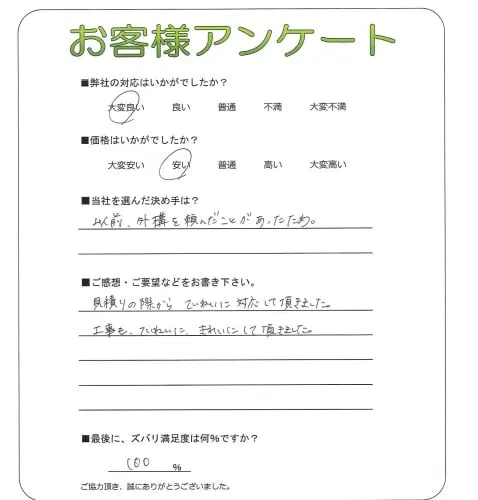 お客様アンケート
■弊社の対応はいかがでしたか？
大変良い 良い 普通 不満 大変不満
■価格はいかがでしたか？
大変安い 安い 普通 高い 大変高い
■当社を選んだ決め手は？
以前、外構を頼んだことがあったため。
■ご感想・ご要望などをお書き下さい。
見積りの際から ていねいに 対応して頂きました。
工事も、ていねいに、きれいにして頂きました。
■最後に、ズバリ満足度は何%ですか？
100 %
ご協力頂き、誠にありがとうございました。